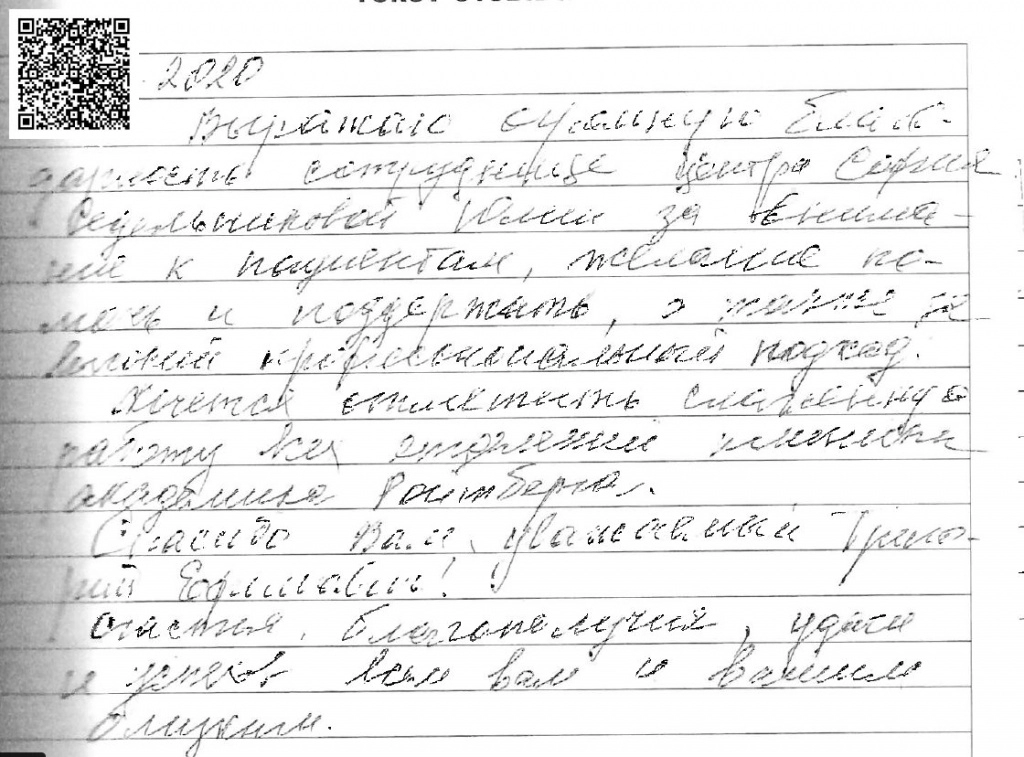 2020
Выражаю огромную благо-
дарность сотруднице центра София
Сидельниковой Юлии за внима-
ние к пациентам, желание по-
мочь и поддержать, а также за
высокий профессиональный подход.
Хочется отметить слаженную
работу всех отделений клиники
академика Ройтберга.
Спасибо Вам, уважаемый Григо-
рий Ефимович!
Счастья, благополучия, удачи
и успехов всем вам и вашим
близким.